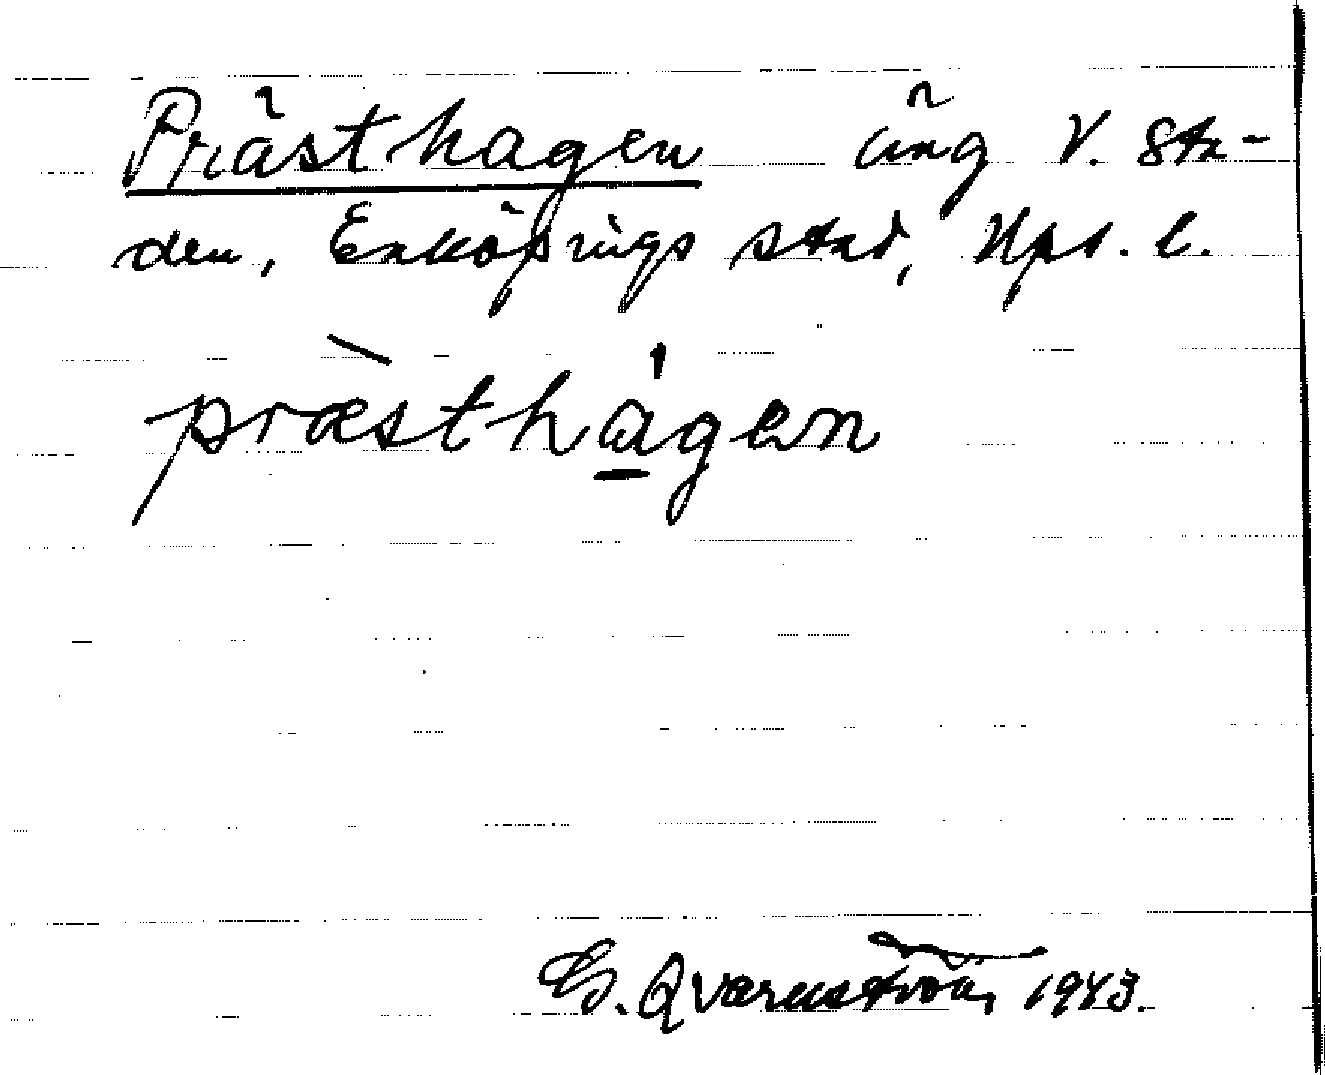 Prästhagen äng V. Sta-
den, Enköpings stad, Upps. l.
præ̀stha̲̍gen
G. Qvarnström 1943.